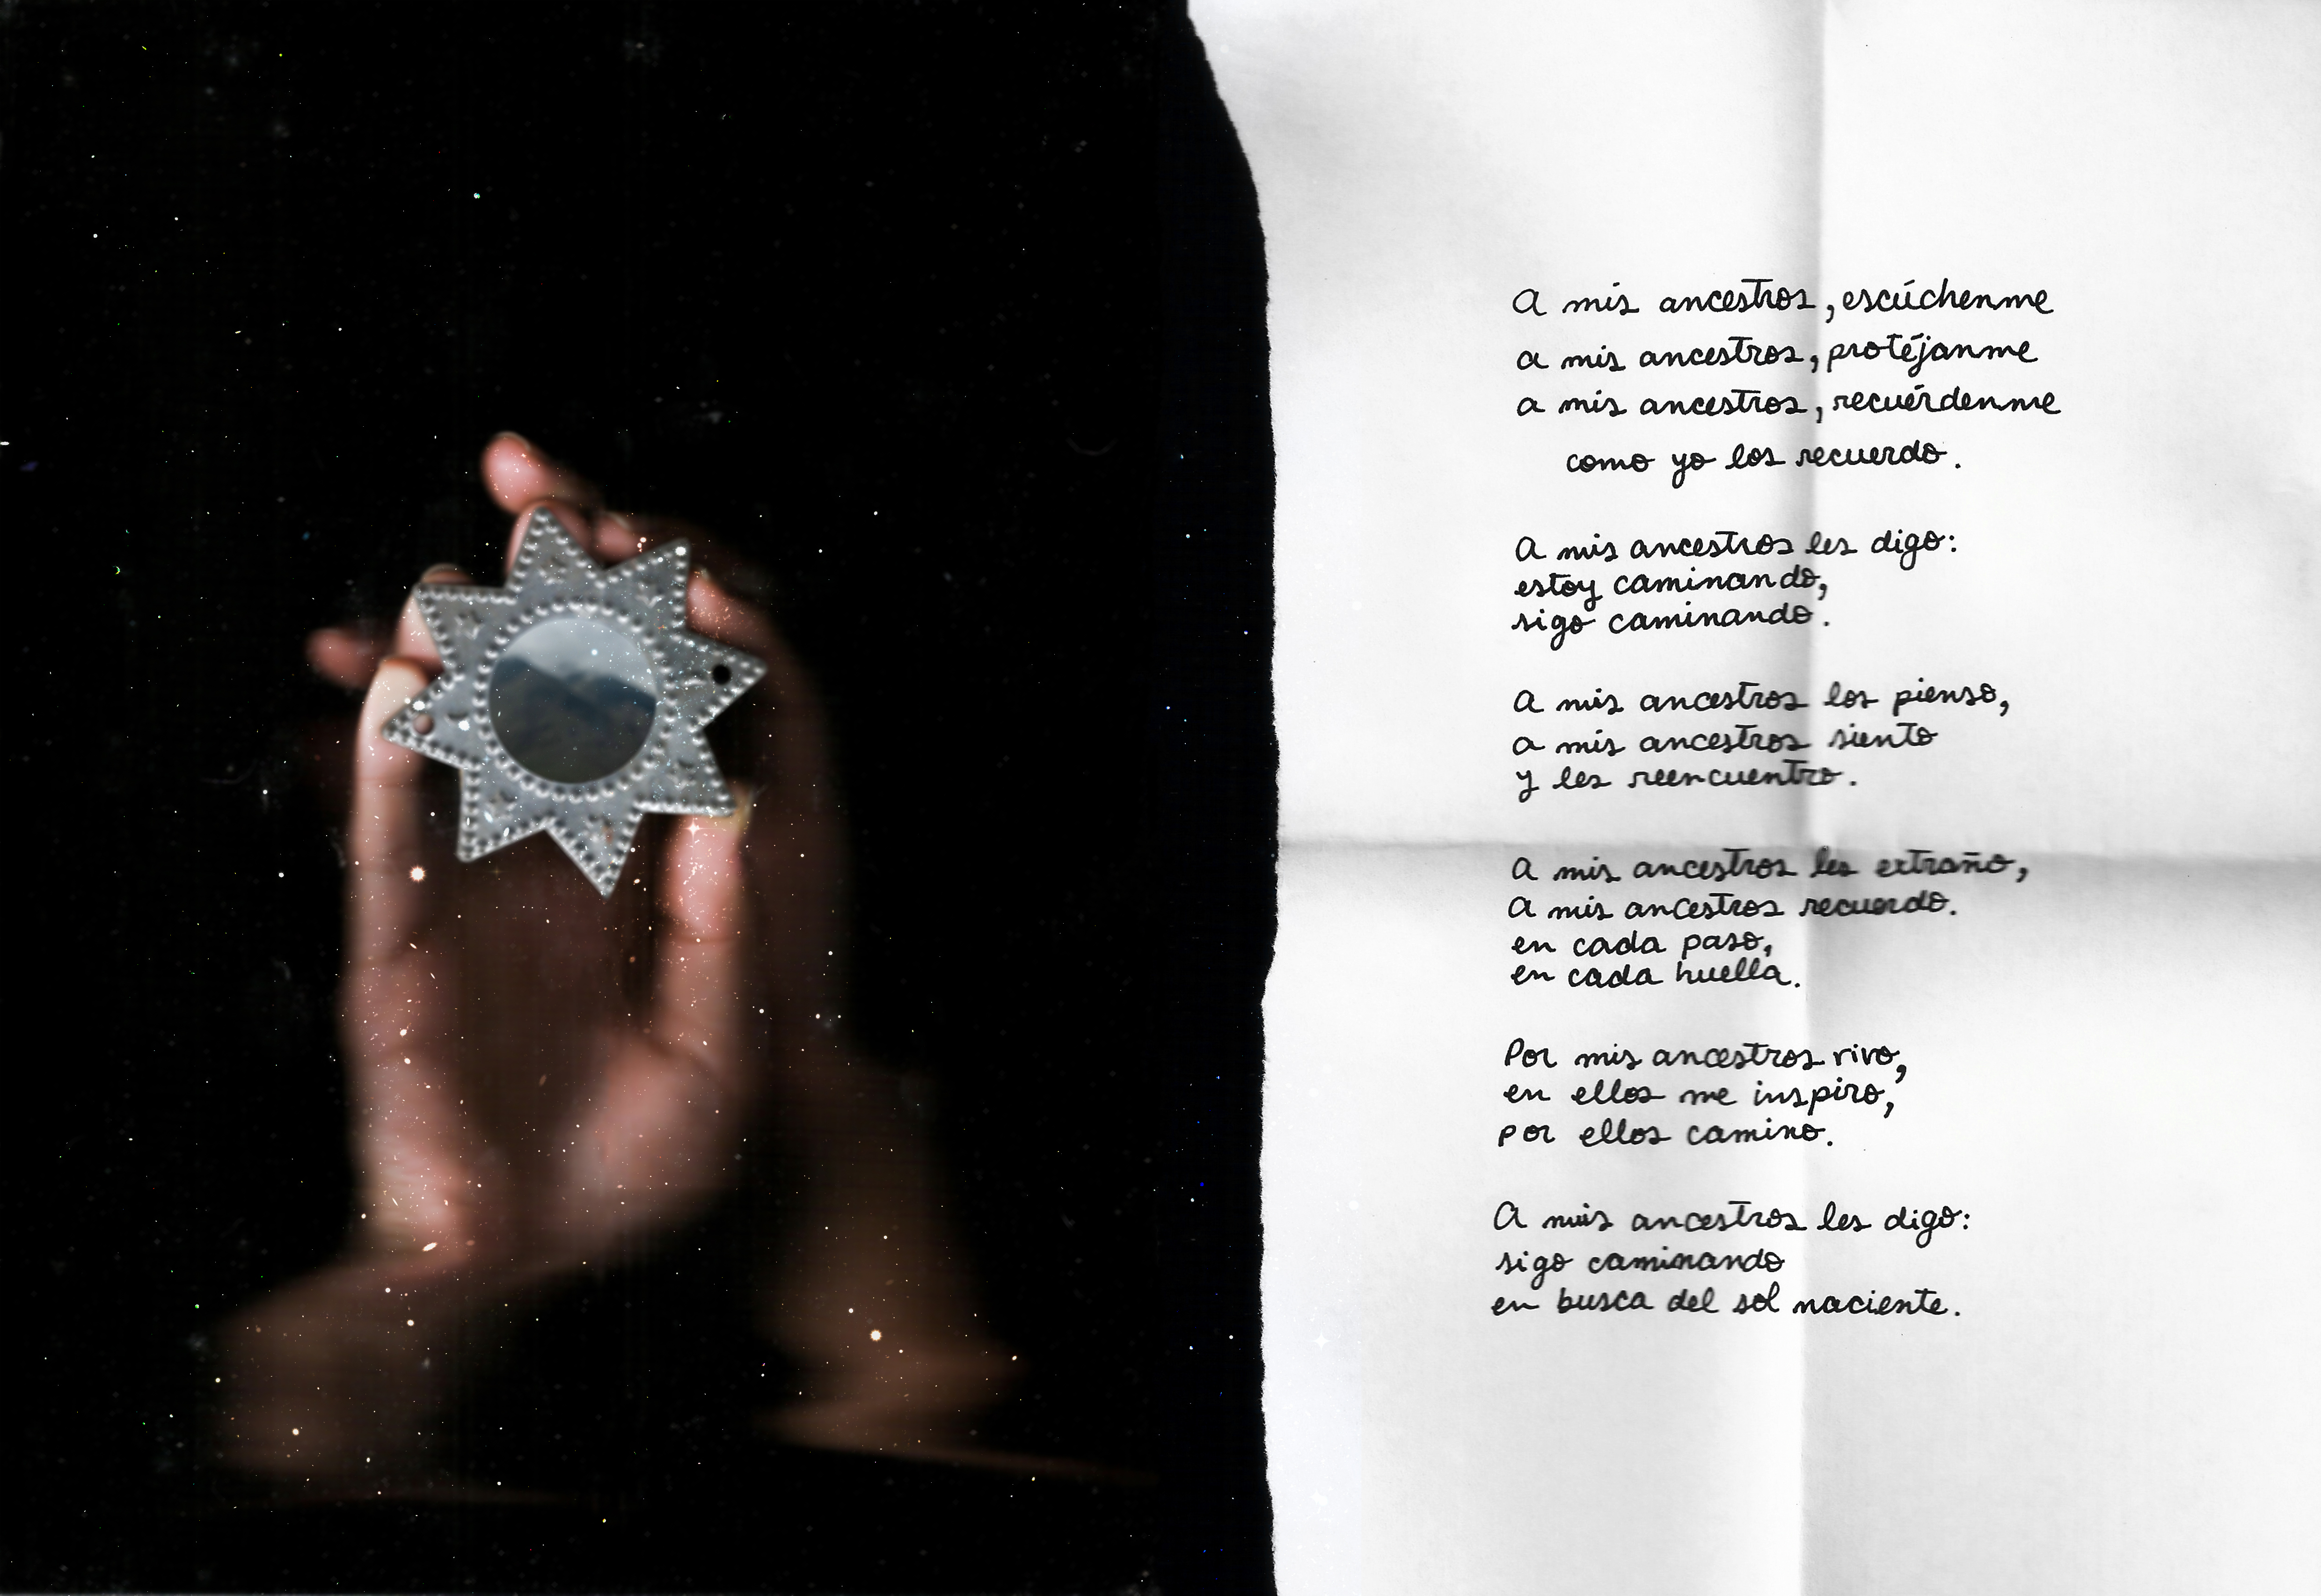 A mis ancestros, escúchenme
a mis ancestros, protéjanme
a mis ancestros, recuérdenme
como yo los recuerdo.
A mis ancestros les digo:
estoy caminando,
sigo caminando.
A mis ancestros los pienso,
a mis ancestros siento
y les reencuentro.
A mis ancestros les extraño,
A mis ancestros recuerdo.
en cada paso,
en cada huella.
Por mis ancestros vivo,
en ellos me inspiro,
por ellos camino.
A mis ancestros les digo:
sigo caminando
en busca del sol naciente.